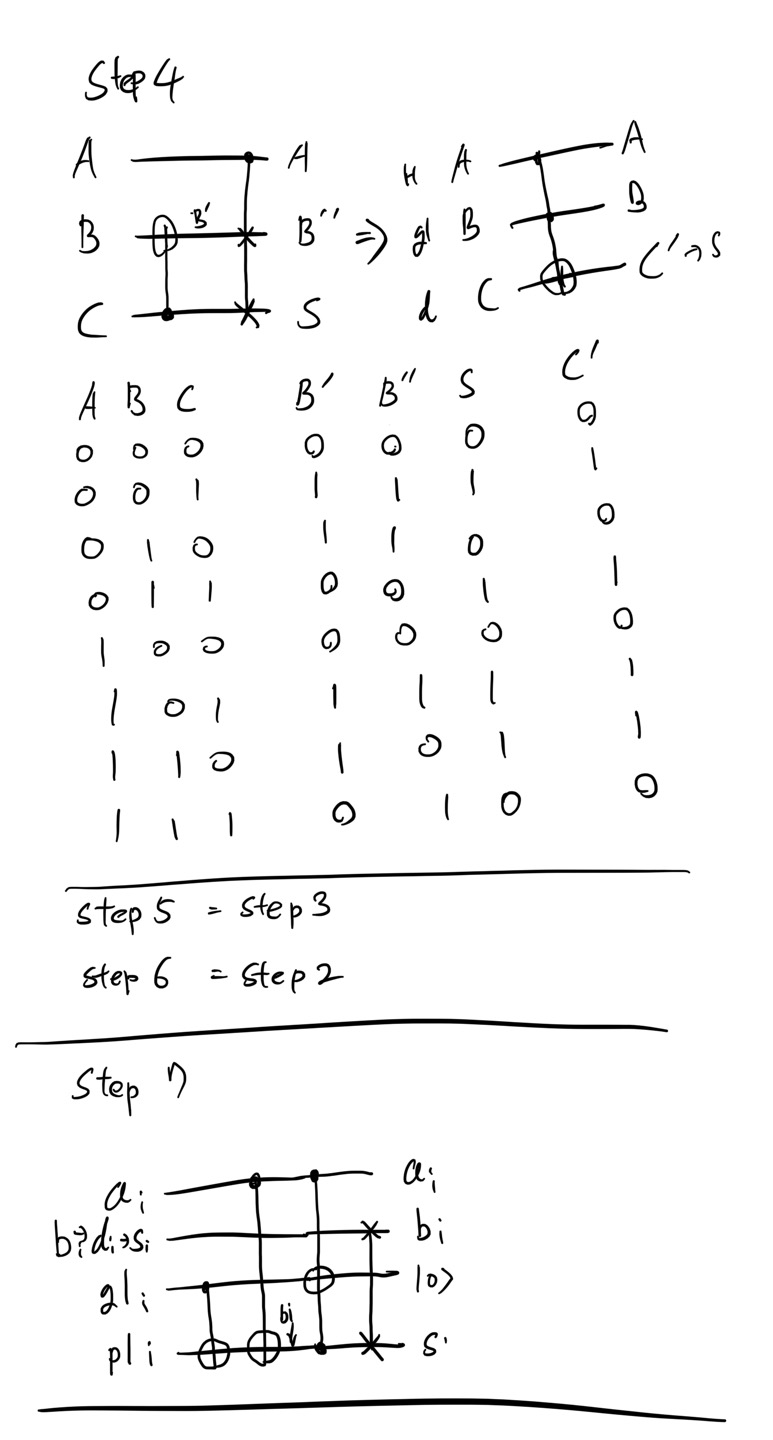 Step 4
A A H A A
B B' B'' ⇒ gl B B
C S d C C' → S
A B C B' B'' S C'
0 0 0 0 0 0 0
0 0 1 1 1 1 1
0 1 0 1 1 0 0
0 1 1 0 0 1 1
1 0 0 0 0 0 0
1 0 1 1 1 1 1
1 1 0 1 0 1 1
1 1 1 0 1 0 0
step 5 = step 3
step 6 = step 2
Step 7
ai ai
bi→di→si bi
gli |0>
bi
pli s